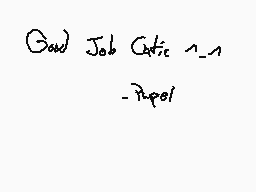 Good Job Catic ^_^
-Pupel